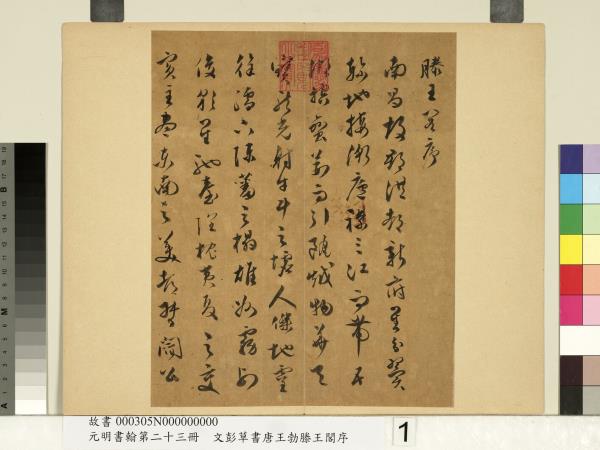 滕王閣序
南昌故郡洪都新府星分翼
軫地接衡廬襟三江而帶五
湖控蠻荊而引甌越物華天
寶龍光射牛斗之墟人傑地靈
徐孺下陳蕃之榻雄州霧列
俊彩星馳臺隍枕夷夏之交
賓主盡東南之美都督閻公
故書 000305N000000000
元明書翰第二十三冊　文彭草書唐王勃滕王閣序
1